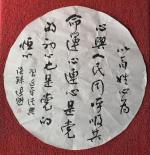 以百姓心为
心与人民同呼吸共
命运心连心是党
的初心也是党的
恒心
习近平经典